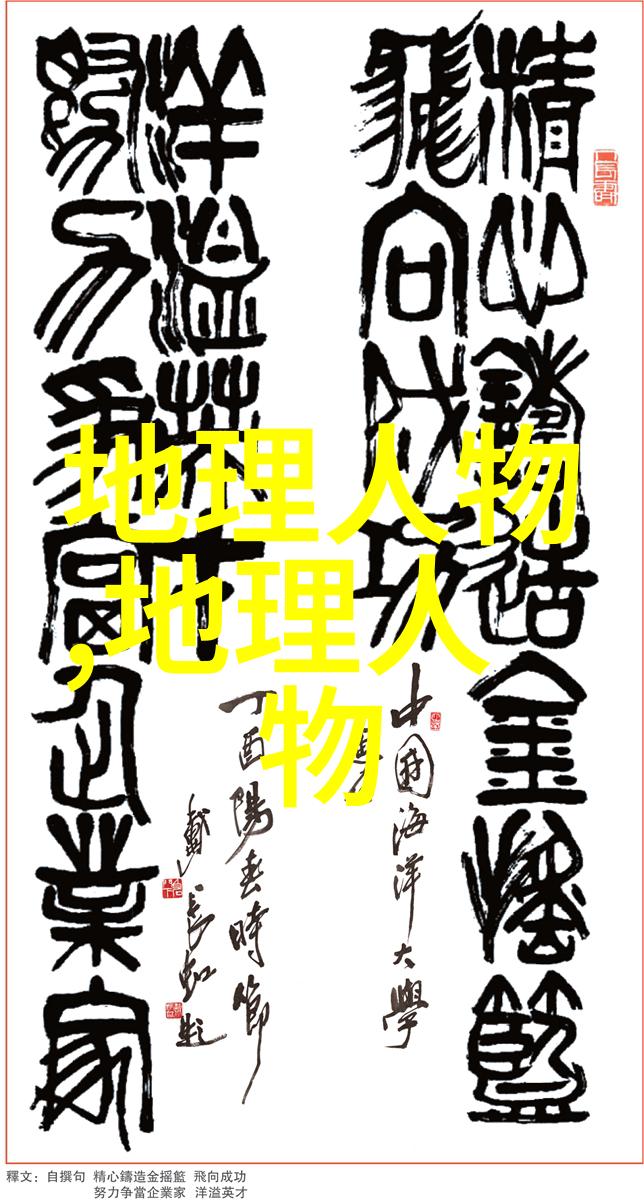 精心鑄造金搖籃
飛向成功
中國海洋大學
洋溢英才
努力爭當企業家
丁酉陽春時節
戴長虹題
地理人物
,地理人
物
釋文：自撰句 精心鑄造金摇籃 飛向成功
努力争當企業家 洋溢英才